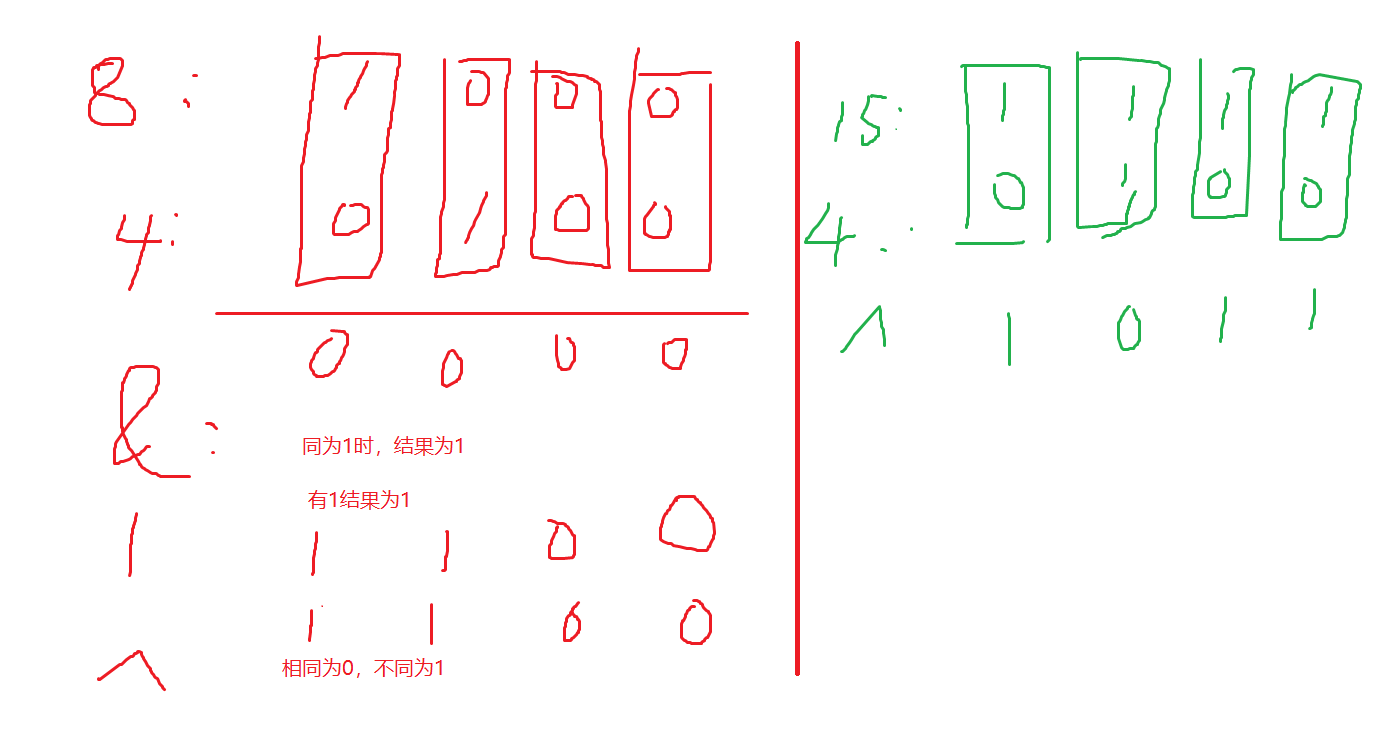 8: 1 0 0 0
4: 0 1 0 0
0 0 0 0
&:
同为1时，结果为1
有1结果为1
| 1 1 0 0
1 1 0 0
^
相同为0，不同为1
15: 1 1 1 1
4: 0 1 0 0
^ 1 0 1 1